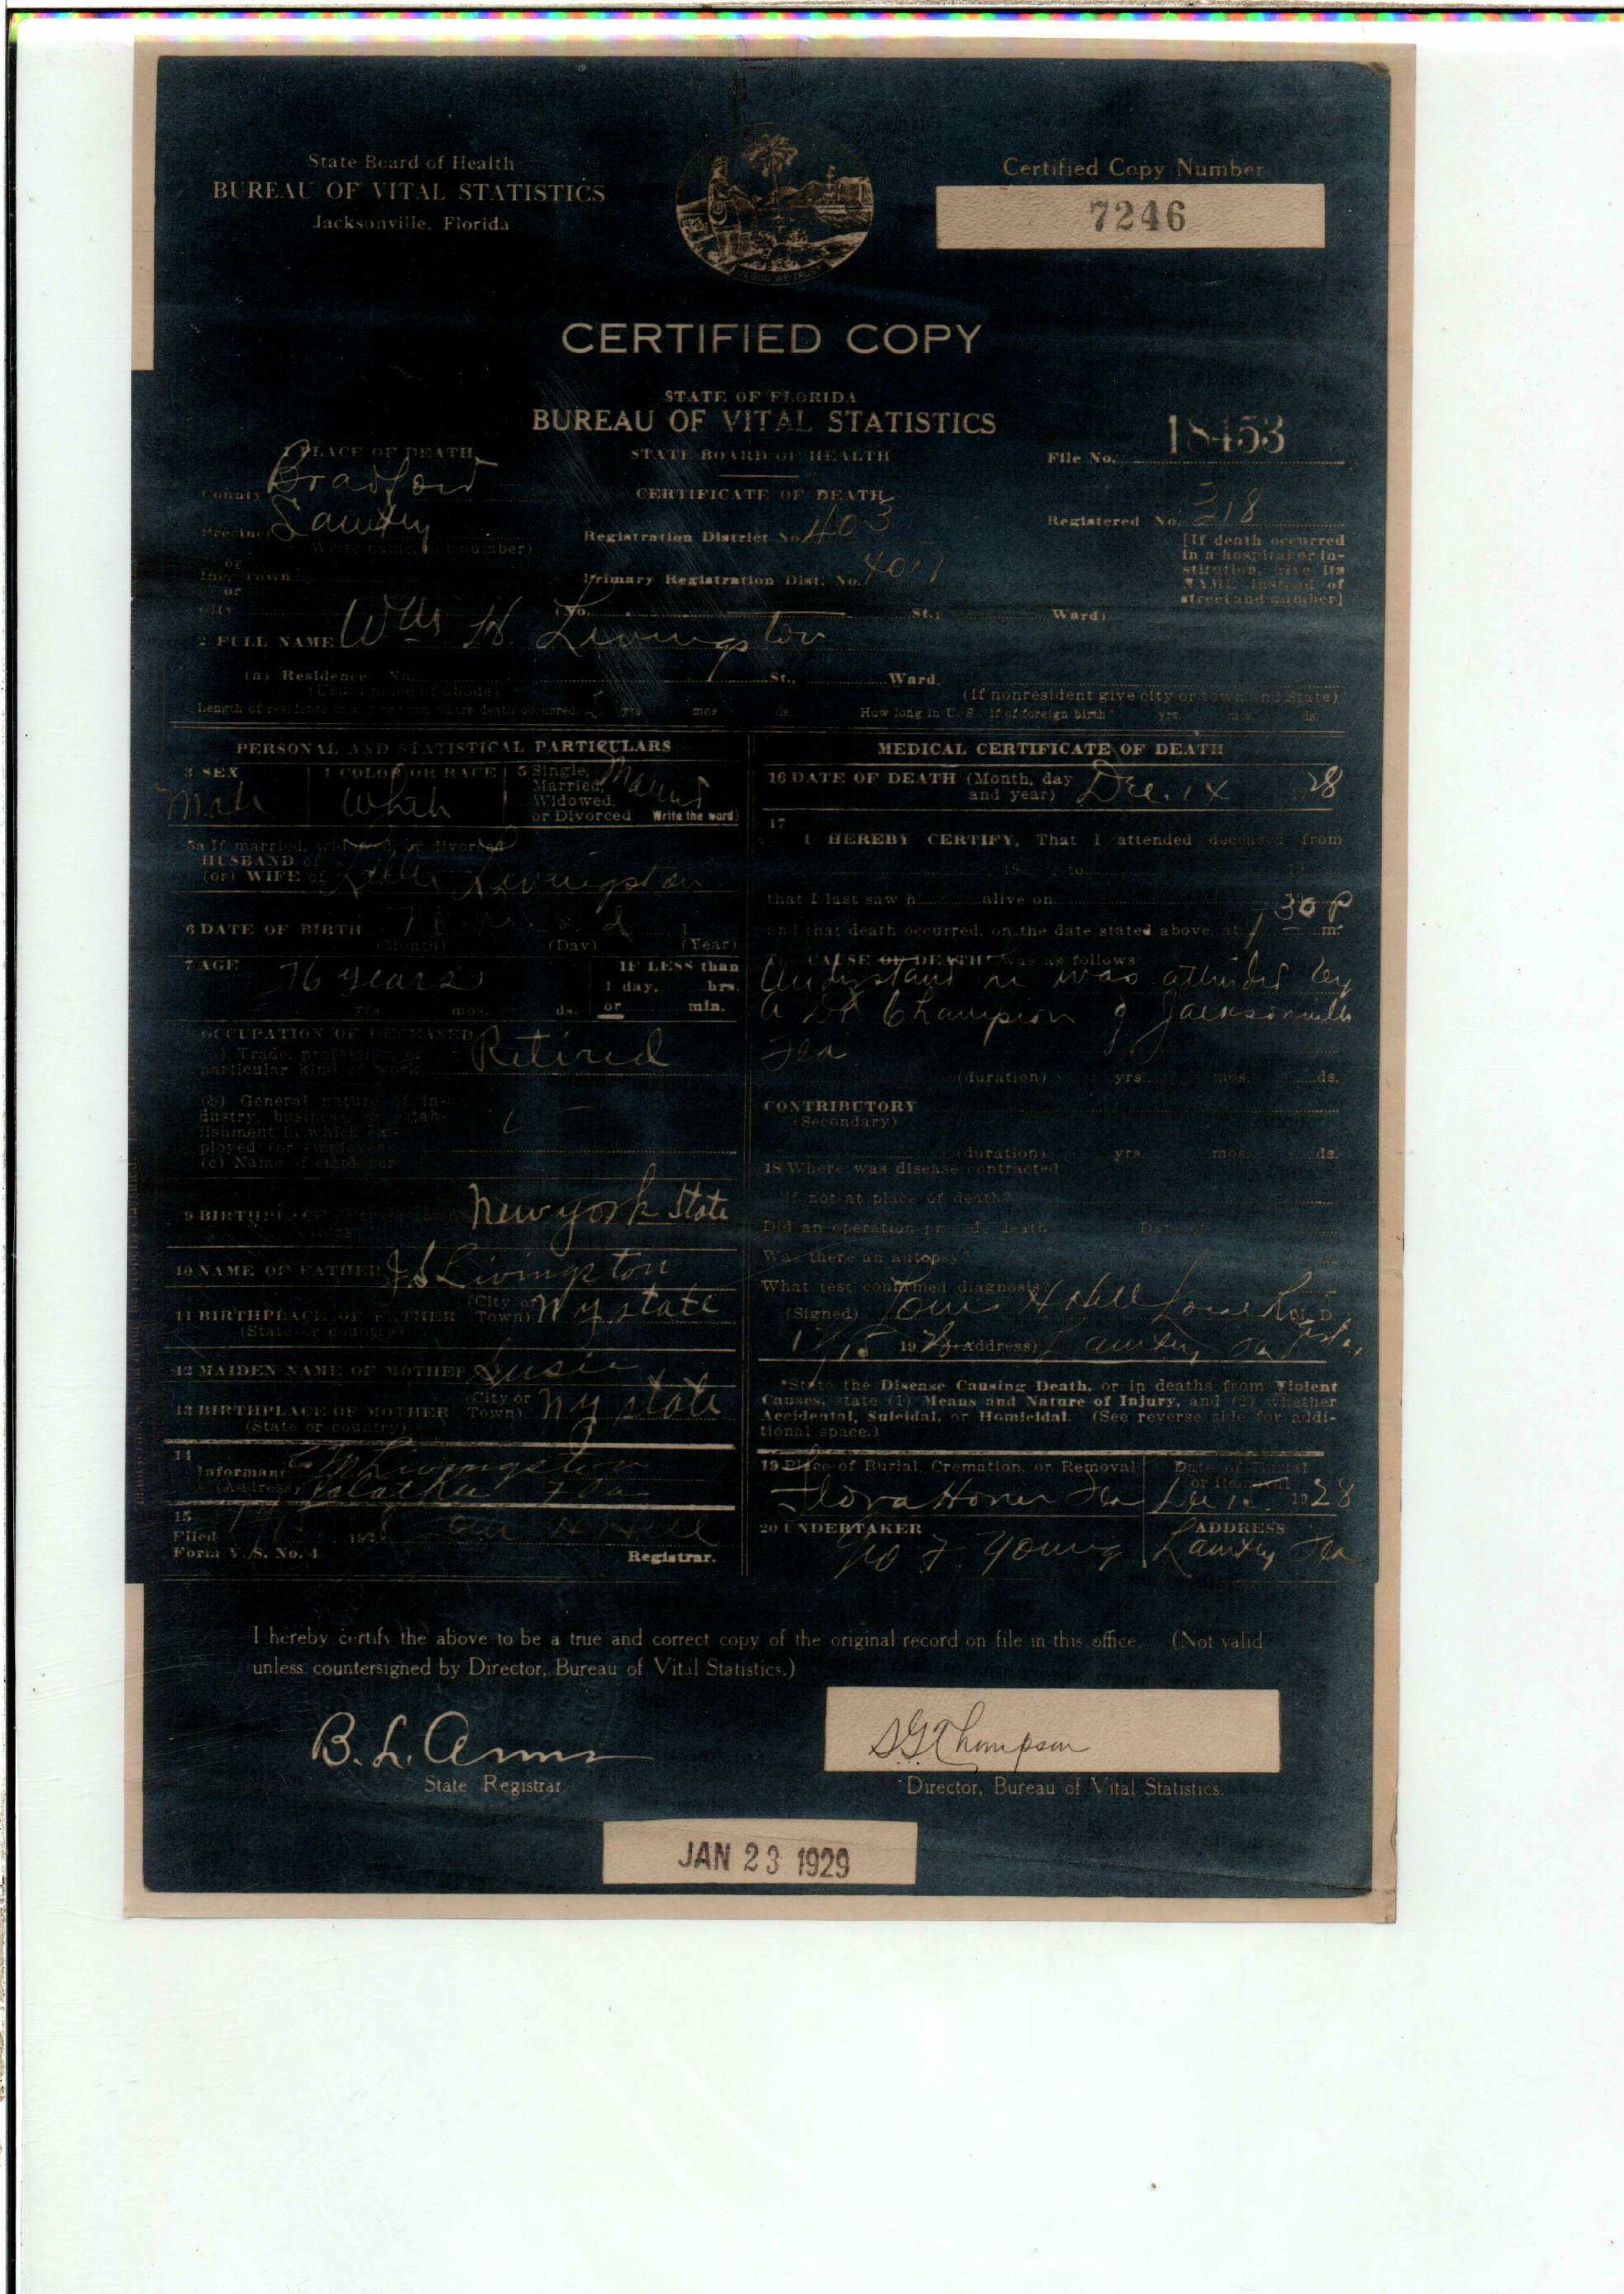 State Board of Health
BUREAU OF VITAL STATISTICS
Jacksonville, Florida
IN GOD WE TRUST
Certified Copy Number
7246
CERTIFIED COPY
STATE OF FLORIDA
BUREAU OF VITAL STATISTICS
STATE BOARD OF HEALTH
CERTIFICATE OF DEATH
File No. 18453
1 PLACE OF DEATH
County Bradford
Precinct Lawtey
(Write name, not number)
or
Inc. Town
or
City (No. St.; Ward)
Registration District No. 403
Primary Registration Dist. No.
Registered No. 318
[If death occurred
in a hospital or in-
stitution, give its
NAME instead of
street and number]
2 FULL NAME Wm H. Livingston
(a) Residence No. St., Ward.
(Usual place of abode) (If nonresident give city or town and State)
Length of residence in city or town where death occurred 5 yrs. mos. ds. How long in U. S. if of foreign birth? yrs. mos. ds.
PERSONAL AND STATISTICAL PARTICULARS
3 SEX
Male
4 COLOR OR RACE
White
5 Single,
Married,
Widowed,
or Divorced Write the word)
Married
5a If married, widowed, or divorced
HUSBAND of
(or) WIFE of Livingston
6 DATE OF BIRTH 1
(Month) (Day) (Year)
7 AGE 76 years
yrs. mos. ds.
IF LESS than
1 day, hrs.
or min.
8 OCCUPATION OF DECEASED
(a) Trade, profession, or
particular kind of work Retired
(b) General nature of in-
dustry, business, or estab-
lishment in which em-
ployed (or employer)
(c) Name of employer
9 BIRTHPLACE New york State
10 NAME OF FATHER J S Livingston
11 BIRTHPLACE OF FATHER (City or Town) N y state
(State or country)
12 MAIDEN NAME OF MOTHER Susie
13 BIRTHPLACE OF MOTHER (City or Town) N y state
(State or country)
14
Informant Livingston
(Address) Palatka Fla
15
Filed 12/15 1928 H Hill
Form V. S. No. 4 Registrar.
MEDICAL CERTIFICATE OF DEATH
16 DATE OF DEATH (Month, day
and year) Dec. 14 28
17
I HEREBY CERTIFY, That I attended deceased from
19 to 19
that I last saw h alive on 19
and that death occurred, on the date stated above, at 1 30 P m.
The CAUSE OF DEATH* was as follows
Understand he was attended by
a Dr Champion of Jacksonville
Fla
(duration) yrs. mos. ds.
CONTRIBUTORY
(Secondary)
(duration) yrs. mos. ds.
18 Where was disease contracted
if not at place of death?
Did an operation precede death? Date of
Was there an autopsy?
What test confirmed diagnosis?
(Signed) H Hill Local M. D.
12/15 1928 (Address) Lawtey Fla
*State the Disease Causing Death, or in deaths from Violent
Causes, state (1) Means and Nature of Injury, and (2) whether
Accidental, Suicidal, or Homicidal. (See reverse side for addi-
tional space.)
19 Place of Burial, Cremation, or Removal
Flora Home Fla
Date of Burial
or Removal
Dec 15 1928
20 UNDERTAKER
Geo F. Young
ADDRESS
Lawtey Fla
I hereby certify the above to be a true and correct copy of the original record on file in this office. (Not valid
unless countersigned by Director, Bureau of Vital Statistics.)
B. L. Arms
State Registrar.
S G Thompson
Director, Bureau of Vital Statistics.
JAN 23 1929